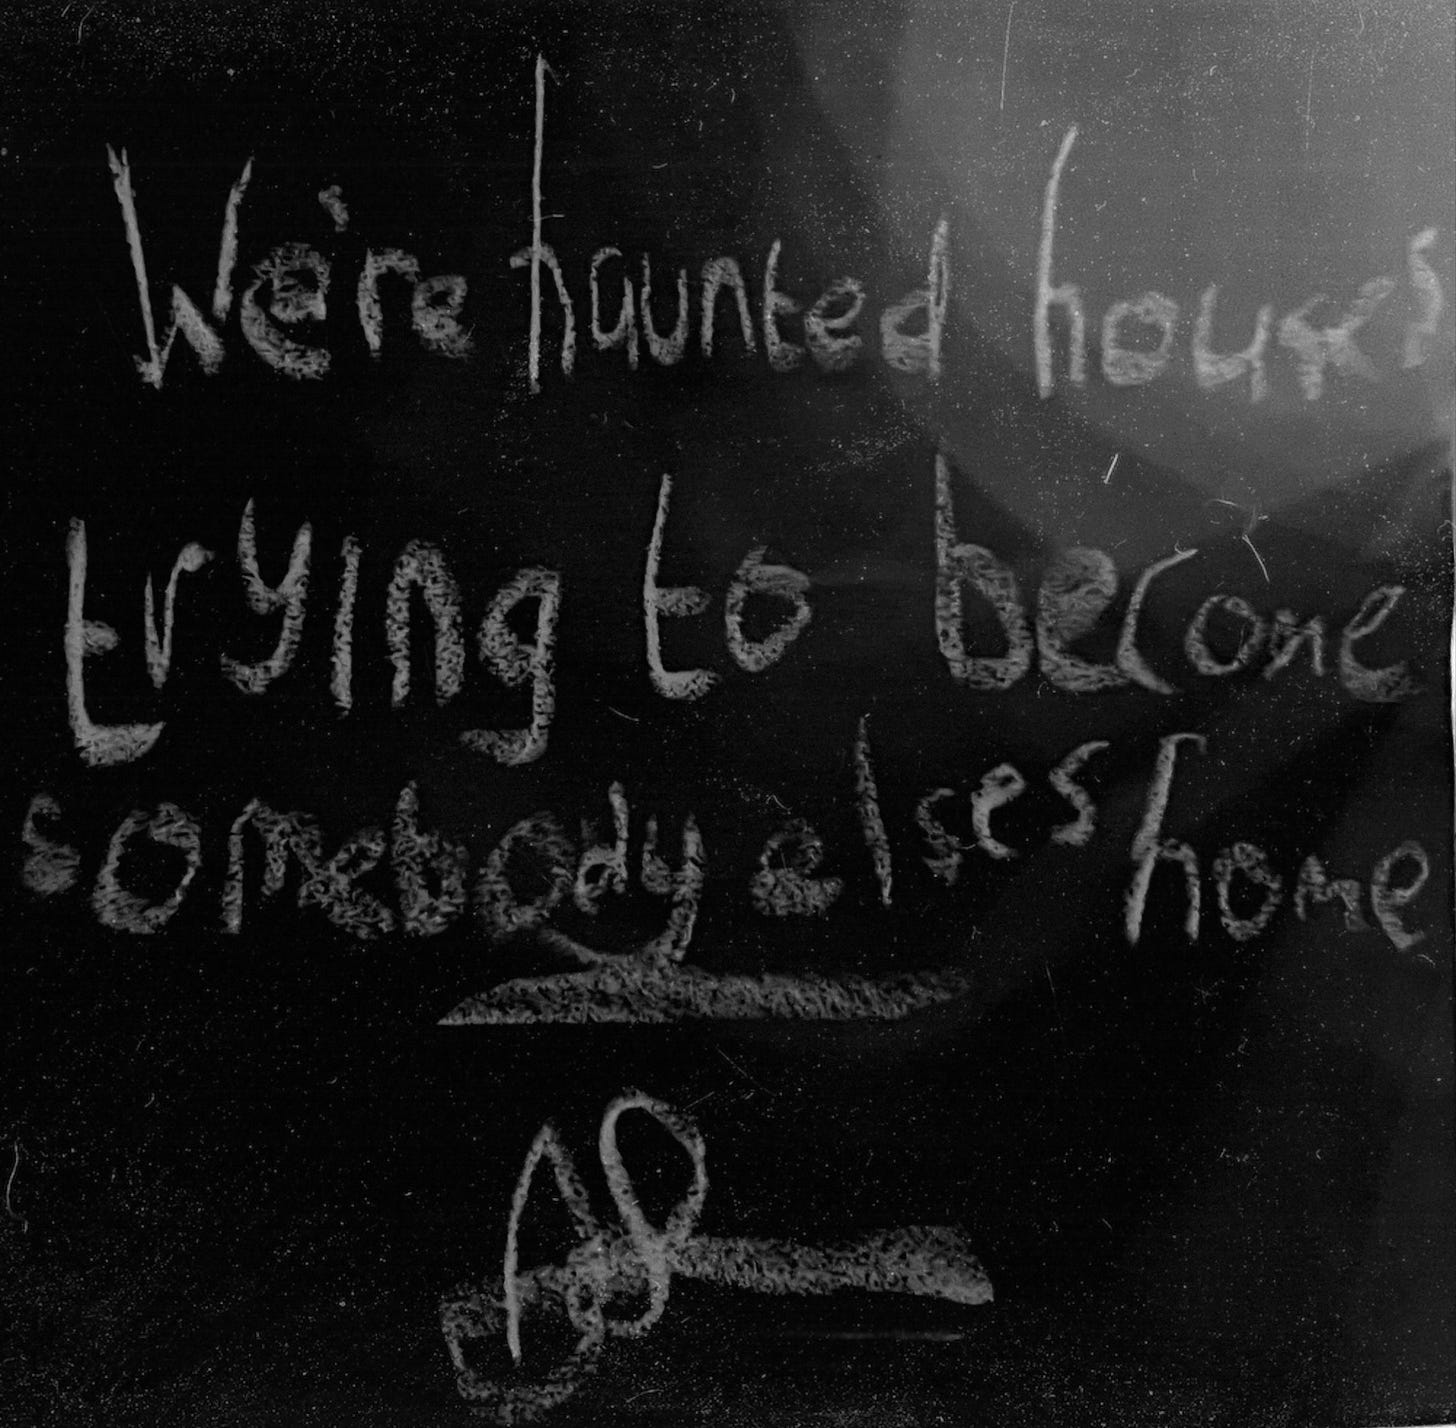 We're haunted houses
trying to become
somebody elses home